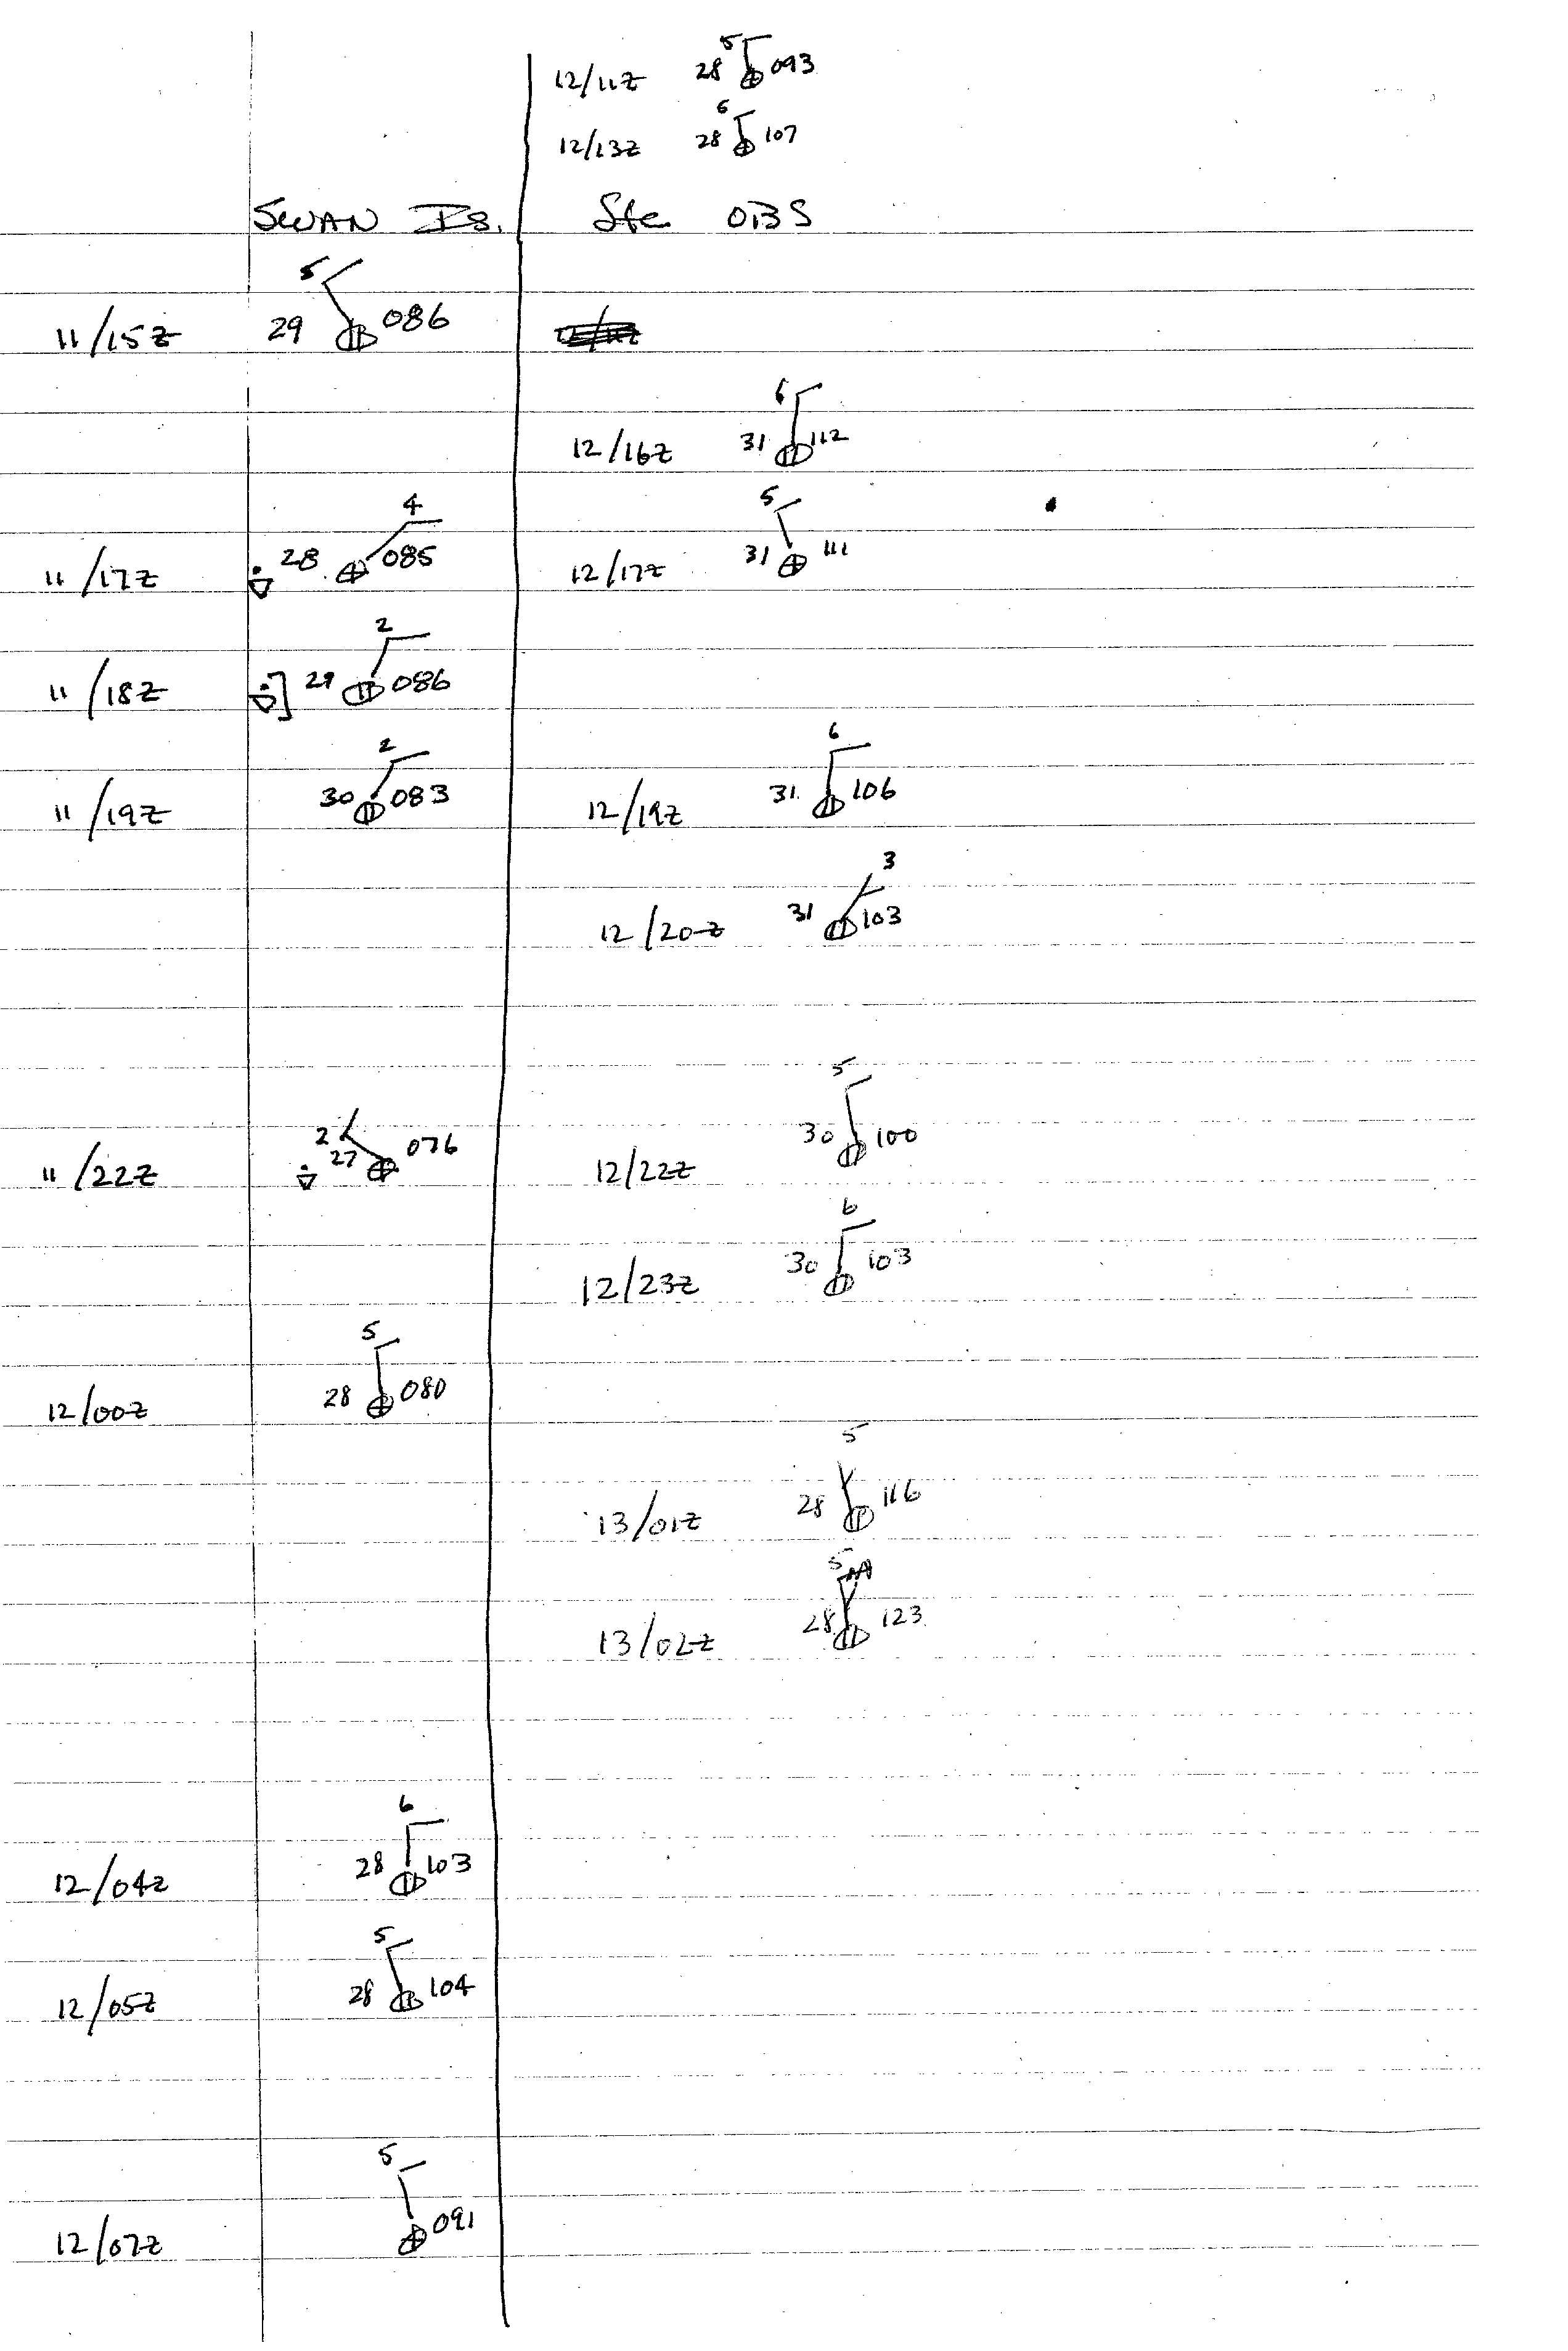 5
12/11Z 28 093
6
12/13Z 28 107
SWAN Is. Sfc OBS
5
11/15Z 29 086
6
12/16Z 31 112
4 5
11/17Z 28 085 12/17Z 31 111
2
11/18Z ] 29 086
2 6
11/19Z 30 083 12/19Z 31 106
3
12/20Z 31 103
5
11/22Z 2 27 076 12/22Z 30 100
6
12/23Z 30 103
5
12/00Z 28 080
5
13/01Z 28 116
5
13/02Z 28 123
6
12/04Z 28 103
5
12/05Z 28 104
5
12/07Z 091